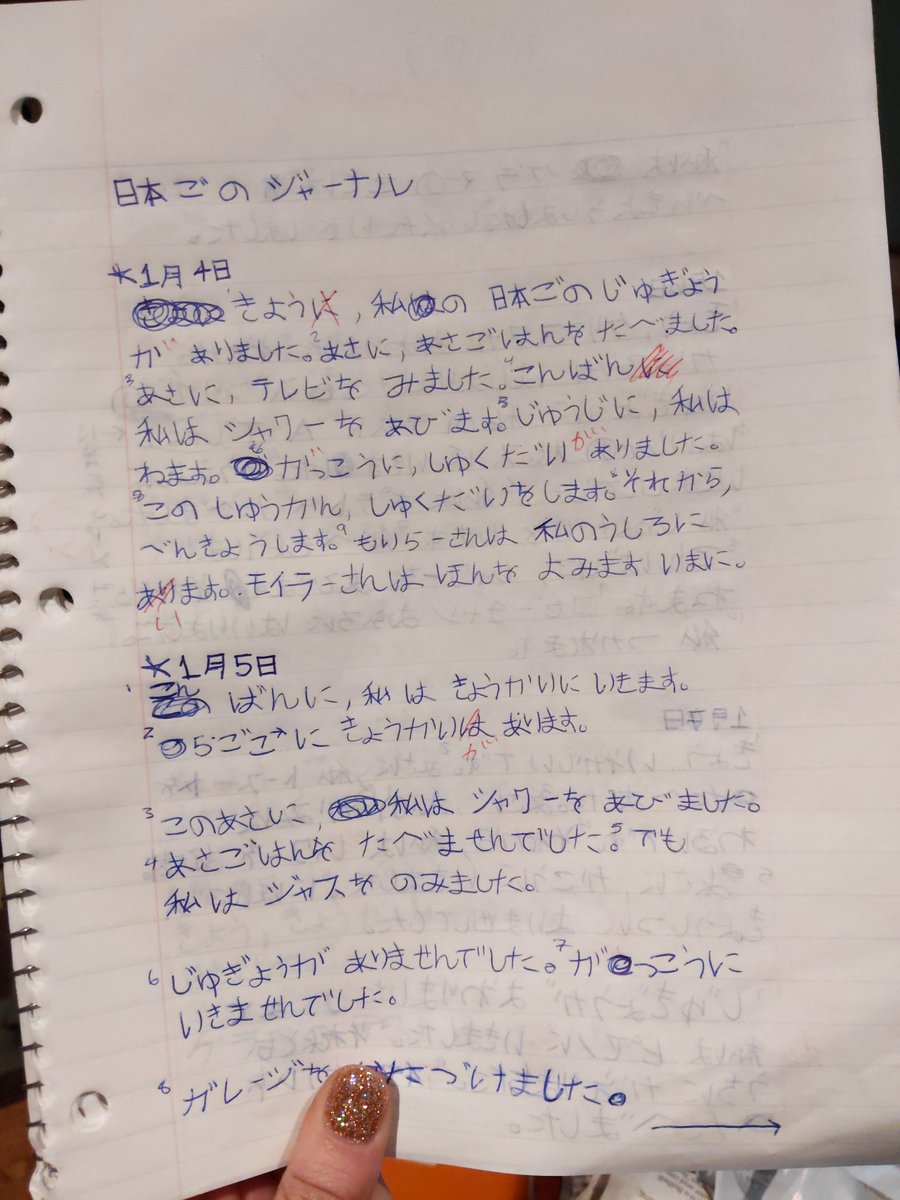 日本ごのジャーナル
*1月4日
きょうに, 私の 日本ごのじゅぎょう
が ありました。²あさに, あさごはんを たべました。
³あさに, テレビを みました。⁴こんばん
私は シャワーを あびます。⁵じゅうじに, 私は
ねます。⁶がっこうに, しゅくだい が ありました。
⁸このしゅうかん, しゅくだいをします。それから,
べんきょうします。⁹もりらーさんは 私のうしろに
あります。モイラーさんは ほんを よみます いまに。
い
*1月5日
¹こんばんに, 私は きょうかいに いきます。
²に きょうかいは あります。
が
³このあさに, 私は シャワーを あびました。
⁴あさごはんを たべませんでした。⁵でも
私は ジャスを のみました。
⁶じゅぎょうが ありませんでした。⁷がっこうに
いきませんでした。
⁸ガレージを づけました。